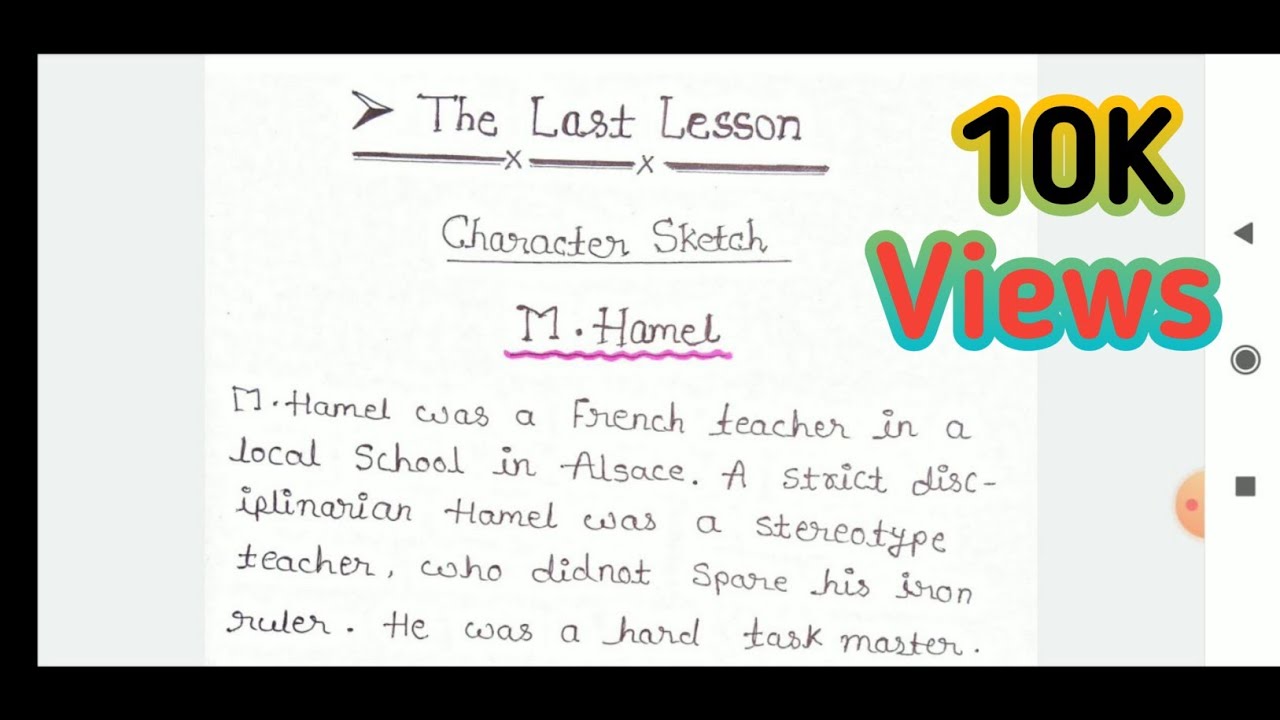 The Last Lesson
Character Sketch
M. Hamel
M. Hamel was a French teacher in a
local School in Alsace. A strict disc-
iplinarian Hamel was a stereotype
teacher, who didnot spare his iron
ruler. He was a hard task master.
10K
Views